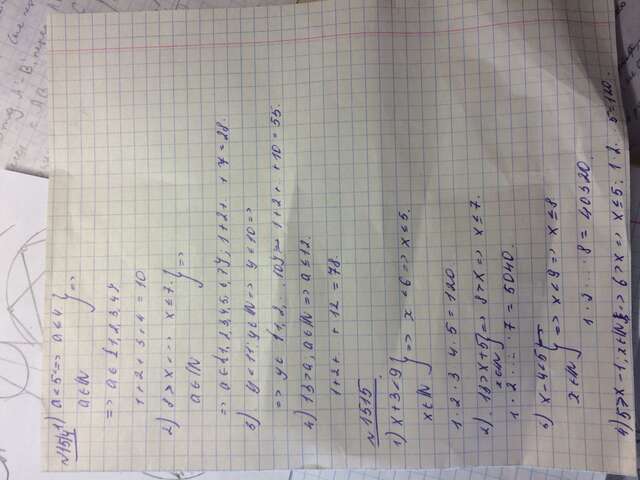 №1514 1) a<5 => a≤4 } =>
a∈ℕ
=> a∈{1,2,3,4}
1+2+3+4=10
2) 8>x => x≤7 } =>
a∈ℕ
=> a∈{1,2,3,4,5,6,7}; 1+2+..+7=28.
3) y<11; y∈ℕ => y≤10 =>
=> y∈{1,2,...10} => 1+2+..+10=55.
4) 13>a, a∈ℕ => a≤12.
1+2+..+12=78.
№1515
1) x+3<9 } => x<6 => x≤5.
x∈ℕ
1·2·3·4·5=120
2) 13>x+5 } => 8>x => x≤7.
x∈ℕ
1·2·...·7=5040.
3) x-4<5 } => x<9 => x≤8
x∈ℕ
1·2·...·8=40320.
4) 5>x-1, x∈ℕ } => 6>x => x≤5: 1·2·..5=120.